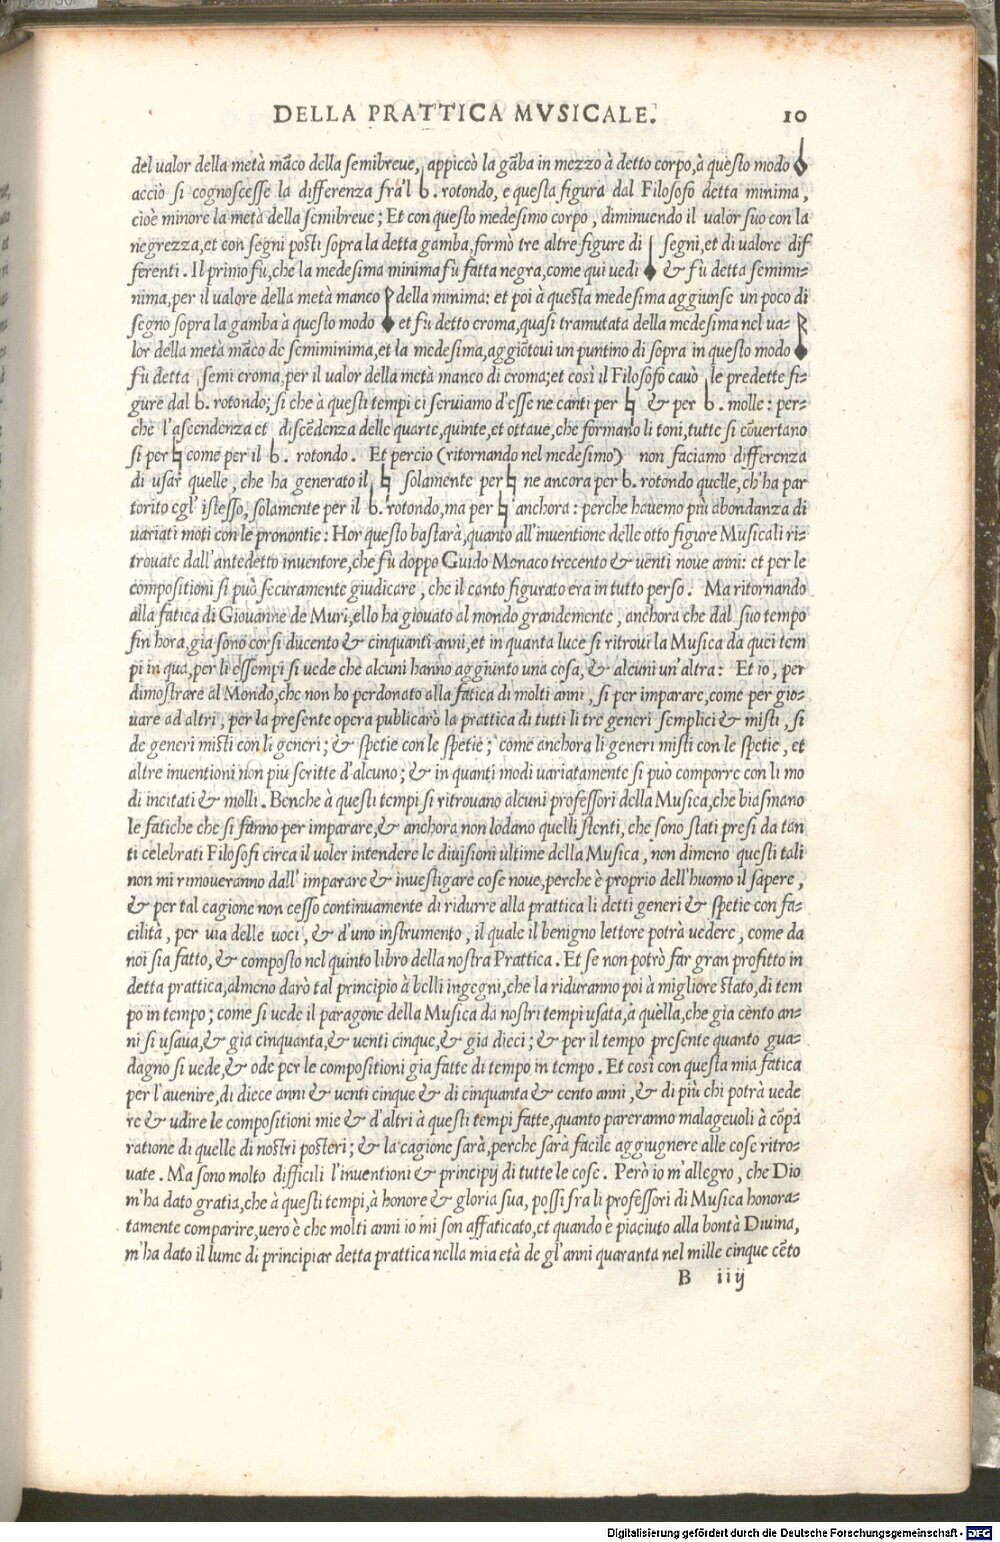 DELLA PRATTICA MVSICALE. 10
del valor della metà māco della semibreue, appiccò la gāba in mezzo à detto corpo, à questo modo
acciò si cognoscesse la differenza fra'l b. rotondo, e questa figura dal Filosofo detta minima,
cioè minore la metà della semibreue; Et con questo medesimo corpo, diminuendo il valor suo con la
negrezza, et con segni posti sopra la detta gamba, formò tre altre figure di segni, et di ualore dif
ferenti. Il primo fù, che la medesima minima fù fatta negra, come qui uedi & fù detta semimi-
nima, per il valore della metà manco della minima: et poi à questa medesima aggiunse un poco di
segno sopra la gamba à questo modo et fù detto croma, quasi tramutata della medesima nel ua-
lor della metà māco de semiminima, et la medesima, aggiōtoui un puntino di sopra in questo modo
fù detta semicroma, per il valor della metà manco di croma; et così il Filosofo cauò le predette fi-
gure dal b. rotondo; si che à questi tempi ci seruiamo d'esse ne canti per ♮ & per b. molle: per-
che l'ascendenza et discēdenza delle quarte, quinte, et ottaue, che formano li toni, tutte si cōuertano
si per ♮ come per il b. rotondo. Et percio (ritornando nel medesimo) non faciamo differenza
di usar quelle, che ha generato il ♮ solamente per ♮ ne ancora per b. rotondo quelle, ch'ha par
torito egl' istesso, solamente per il b. rotondo, ma per ♮ anchora: perche hauemo più abondanza di
uariati moti con le prononcie: Hor questo bastarà, quanto all'inuentione delle otto figure Musicali ri-
trouate dall'antedetto inuentore, che fù doppo Guido Monaco trecento & uenti noue anni: et per le
compositioni si può securamente giudicare, che il canto figurato era in tutto perso. Ma ritornando
alla fatica di Giouanne de Muri, ello ha giouato al mondo grandemente, anchora che dal suo tempo
fin hora, gia sono corsi ducento & cinquanti anni, et in quanta luce si ritroui la Musica da quei tem
pi in qua, per li essempi si uede che alcuni hanno aggiunto una cosa, & alcuni un'altra: Et io, per
dimostrare al Mondo, che non ho perdonato alla fatica di molti anni, si per imparare, come per gio-
uare ad altri, per la presente opera publicarò la prattica di tutti li tre generi semplici & misti, si
de generi misti con li generi; & spetie con le spetie; come anchora li generi misti con le spetie, et
altre inuentioni non più scritte d'alcuno; & in quanti modi uariatamente si può comporre con li mo
di incitati & molli. Benche à questi tempi si ritrouano alcuni professori della Musica, che biasmano
le fatiche che si fanno per imparare, & anchora non lodano quelli stenti, che sono stati presi da tan
ti celebrati Filosofi circa il voler intendere le diuisioni ultime della Musica, non dimeno questi tali
non mi rimoueranno dall' imparare & inuestigare cose noue, perche è proprio dell'huomo il sapere,
& per tal cagione non cesso continuamente di ridurre alla prattica li detti generi & spetie con fa-
cilità, per uia delle uoci, & d'uno instrumento, il quale il benigno lettore potrà uedere, come da
noi sia fatto, & composto nel quinto libro della nostra Prattica. Et se non potrò far gran profitto in
detta prattica, almeno darò tal principio à belli ingegni, che la riduranno poi à migliore stato, di tem
po in tempo; come si uede il paragone della Musica da nostri tempi usata, à quella, che gia cento an-
ni si usaua, & gia cinquanta, & uenti cinque, & gia dieci; & per il tempo presente quanto gua-
dagno si uede, & ode per le compositioni gia fatte di tempo in tempo. Et così con questa mia fatica
per l'auenire, di diece anni & uenti cinque & di cinquanta & cento anni, & di più chi potrà uede
re & udire le compositioni mie & d'altri à questi tempi fatte, quanto pareranno malageuoli à cōpa
ratione di quelle di nostri posteri; & la cagione sarà, perche sarà facile aggiugnere alle cose ritro-
uate. Ma sono molto difficili l'inuentioni & principij di tutte le cose. Però io m'allegro, che Dio
m'ha dato gratia, che à questi tempi, à honore & gloria sua, possi fra li professori di Musica honora-
tamente comparire, uero è che molti anni io mi son affaticato, et quando è piaciuto alla bontà Diuina,
m'ha dato il lume di principiar detta prattica nella mia età de gl'anni quaranta nel mille cinque cēto
B iij
Digitalisierung gefördert durch die Deutsche Forschungsgemeinschaft - DFG